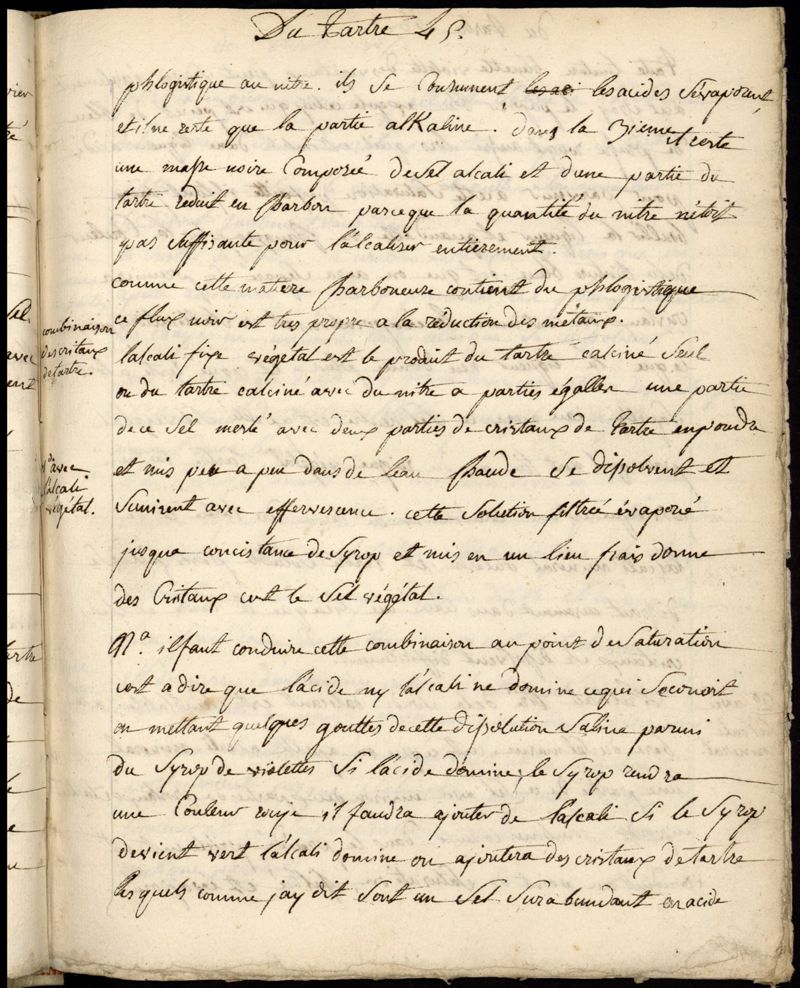 Du Tartre 45.
phlogistique au nitre. ils se Consument les aci les acides s'évaporent,
et il ne reste que la partie alKaline. dans la 3ieme il reste
une masse noire Composée de sel alcali et d'une partie du
tartre réduit en Charbon parceque la quantité du nitre n'étoit
pas suffisante pour l'alcaliser entierement.
comme cette matiere Charboneuze contient du phlogistique
ce flux noir est tres propre a la réduction des métaux.
combinaison
des cristaux
de tartre.
lalcali fixe végétal est le produit du tartre calciné seul
ou du tartre calciné avec du nitre a parties égalles une partie
de ce sel meslé avec deux parties de cristaux de tartre en poudre
nº avec
l'alcali
végétal.
et mis peu a peu dans de leau Chaude se dissolvent et
sunissent avec effervescence. cette solution filtrée évaporée
jusqua concistance de Syrop et mis en un lieu frais donne
des Cristaux cest le sel végétal.
Nª. il faut conduire cette combinaison au point de Saturation
cest adire que lácide ny lálcali ne domine ce qui se conoit
en mettant quelques gouttes de cette dissolution saline parmi
du Syrop de violettes Si lácide domine, le syrop rendra
une Couleur rouje il faudra ajouter de lalcali si le Syrop
devient vert lálcali domine on ajoutera des cristaux de tartre
lesquels comme jay dit sont un sel surabundant en acide